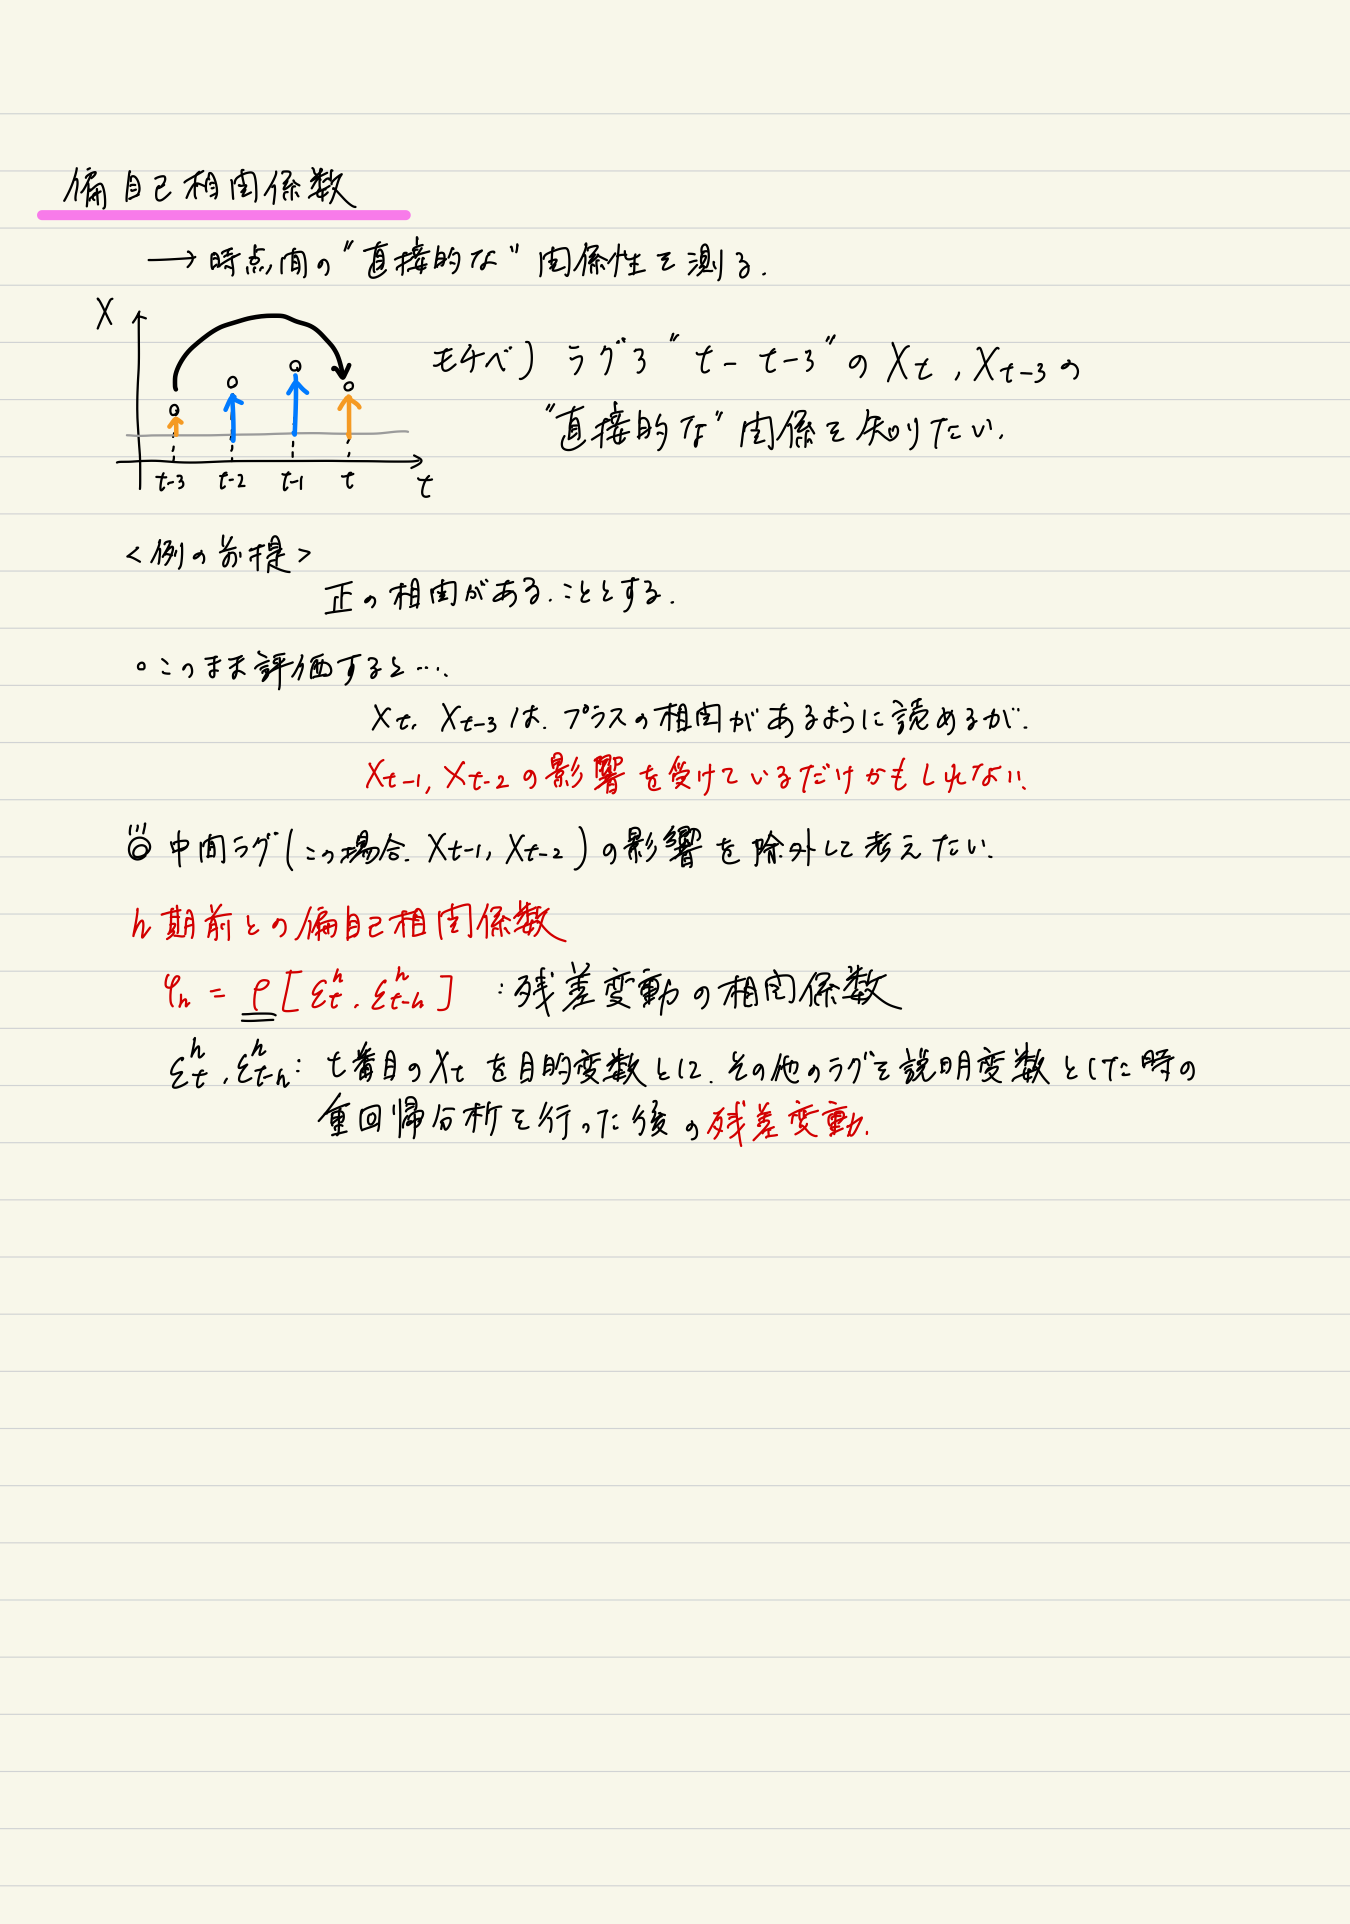 偏自己相関係数
→ 時点間の"直接的な"関係性を測る.
X
t-3 t-2 t-1 t t
モチベ) ラグ3 "t - t-3" の Xt, Xt-3 の
"直接的な" 関係を知りたい.
<例の前提>
正の相関がある.こととする.
○このまま評価すると….
Xt, Xt-3 は. プラスの相関があるように読めるが.
Xt-1, Xt-2 の影響を受けているだけかもしれない.
中間ラグ(この場合. Xt-1, Xt-2)の影響を除外して考えたい.
h期前との偏自己相関係数
φh = ρ[εt^h, εt-h^h] : 残差変動の相関係数
εt^h, εt-h^h : t番目のXtを目的変数とし, その他のラグを説明変数とした時の
重回帰分析を行った後の残差変動.